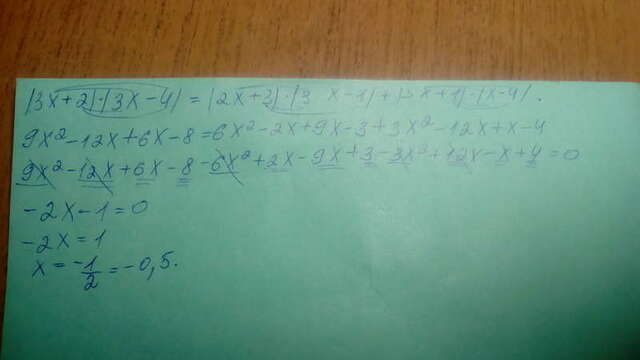 (3x+2)·(3x-4)=(2x+3)·(3x-1)+(3x+1)·(x-4).
9x²-12x+6x-8=6x²-2x+9x-3+3x²-12x+x-4
9x²-12x+6x-8-6x²+2x-9x+3-3x²+12x-x+4=0
-2x-1=0
-2x=1
x=-1/2=-0,5.